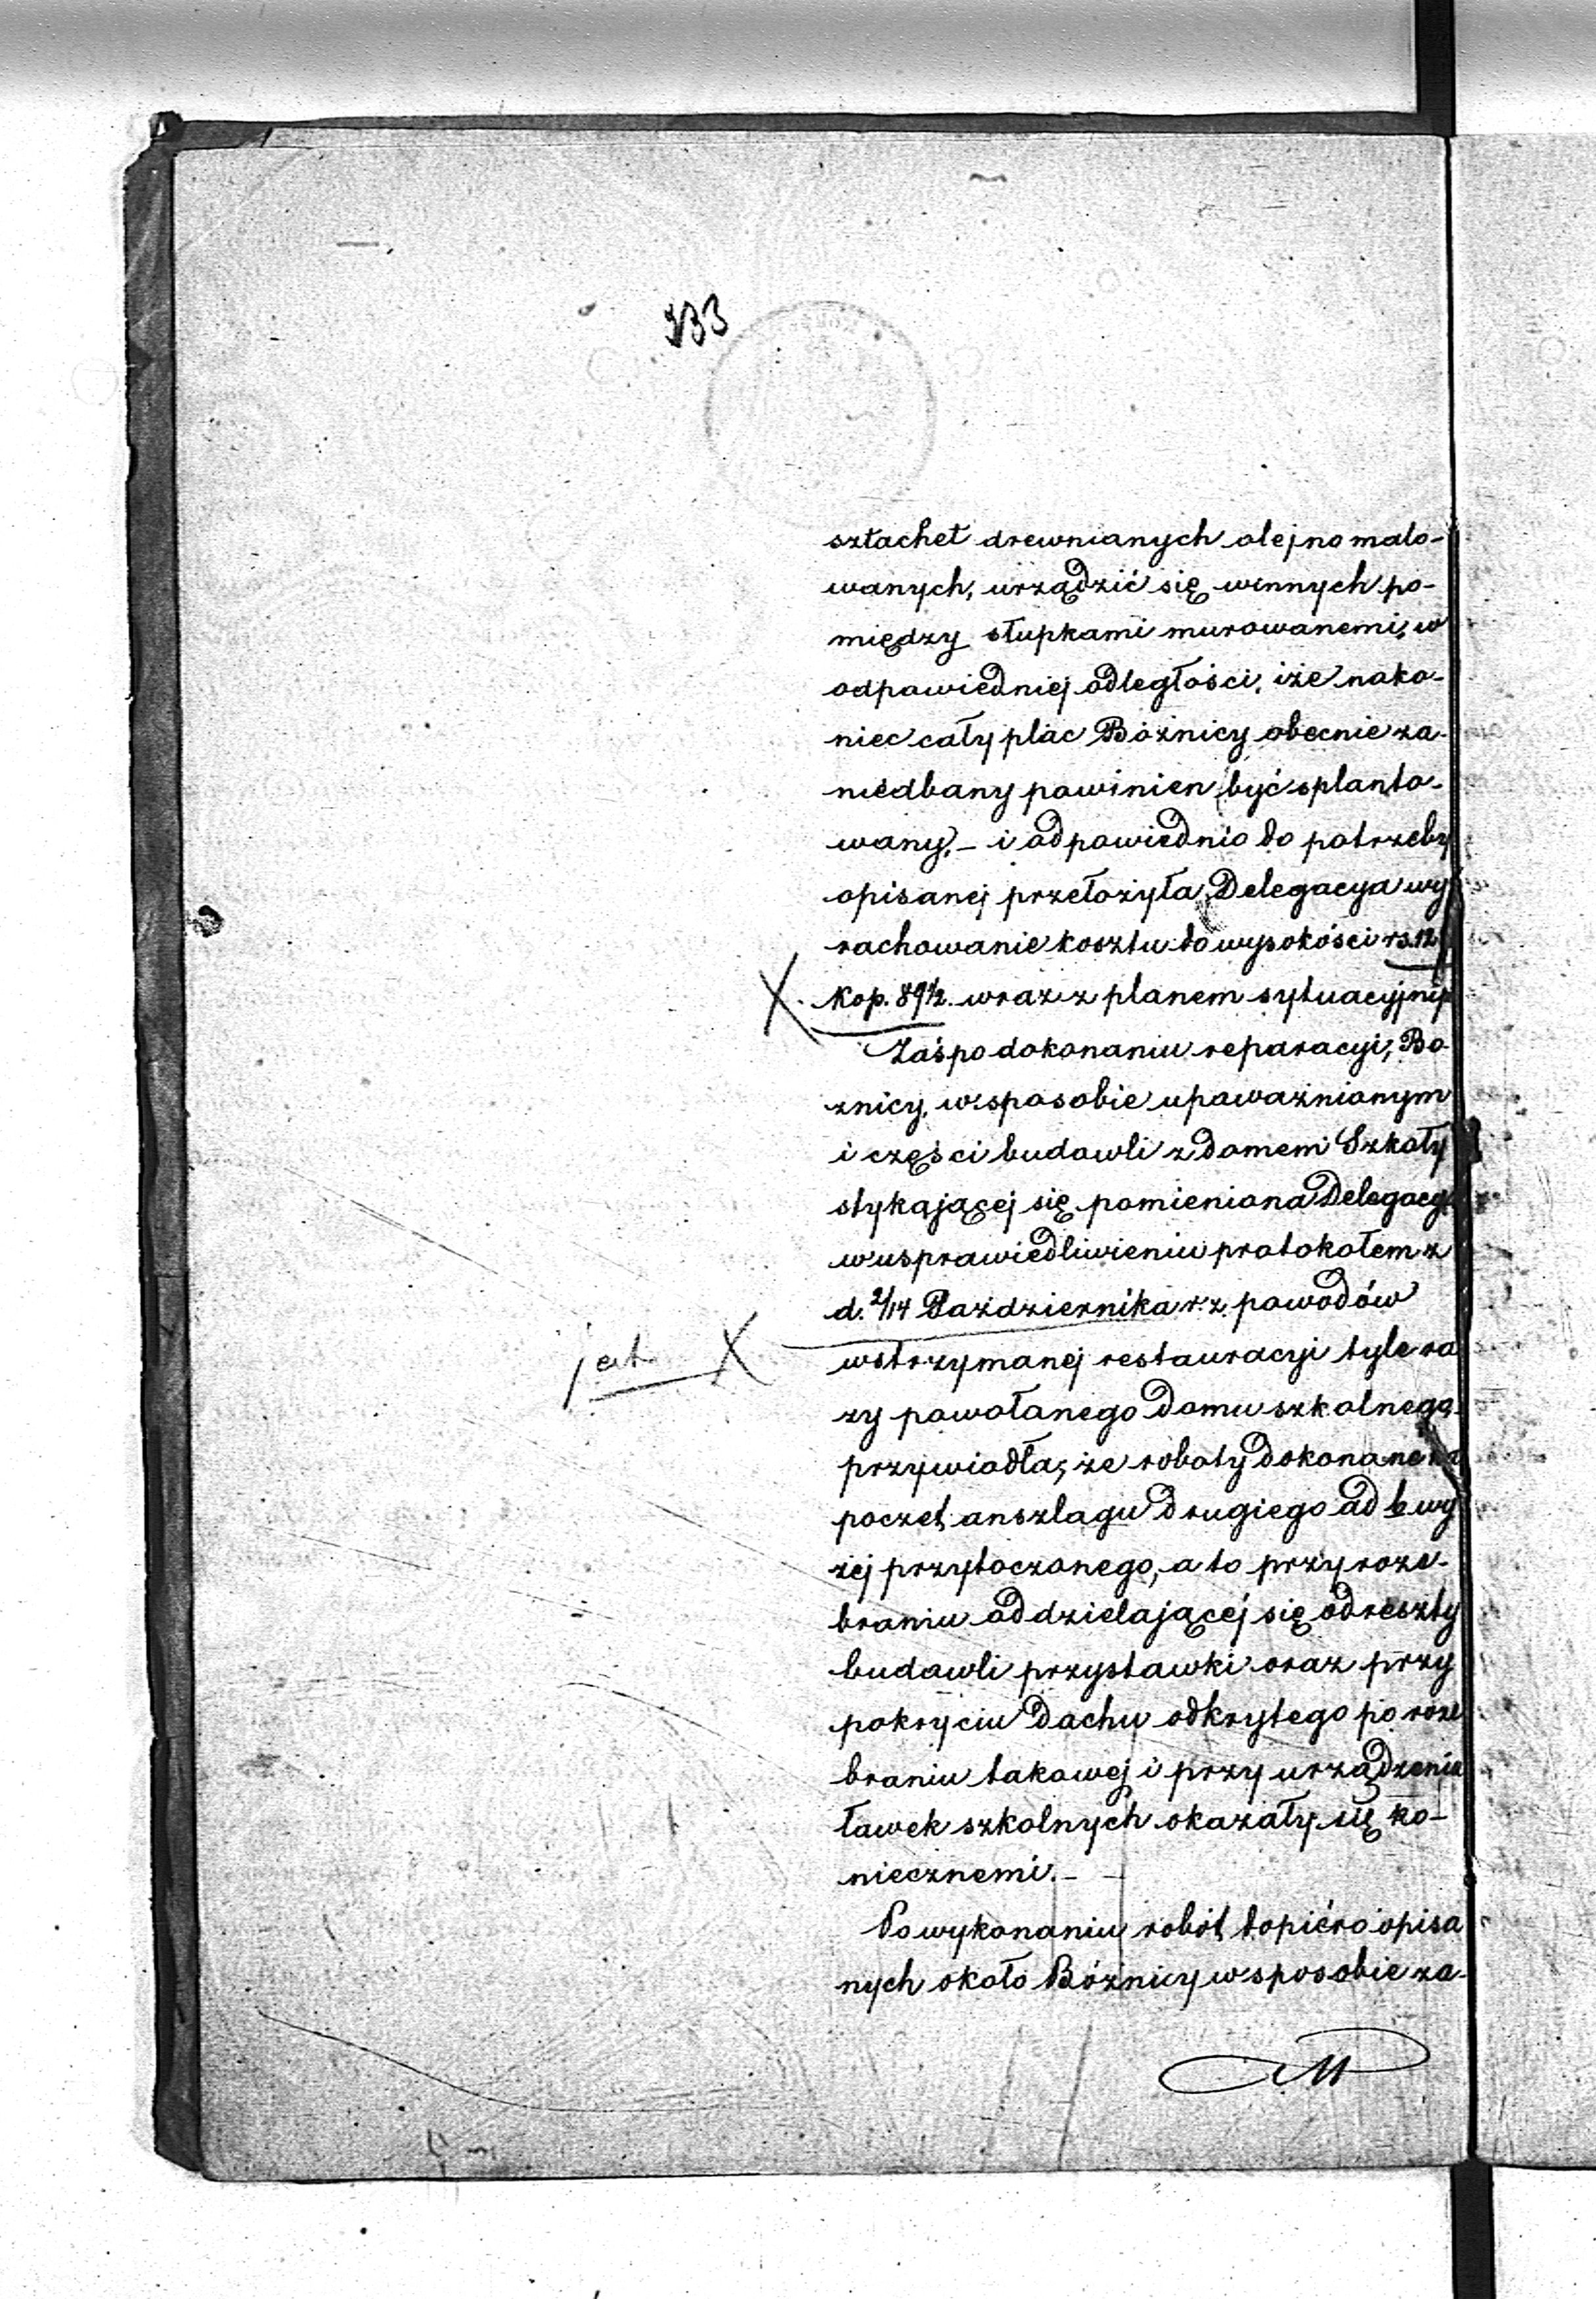 333
sztachet drewnianych olejno malo-
wanych, urządzić się winnych po-
między słupkami murowanemi, w
odpowiedniej odległości, iże nako-
niec cały plac Bóżnicy obecnie za-
niedbany powinien być splanto-
wany, – i odpowiednio do potrzeby
opisanej przełożyła Delegacya wy
rachowanie kosztu do wysokości rs. 12
X. kop. 89½. wraz z planem sytuacyjnÿ
Zaś po dokonaniu reparacyi, Bo-
żnicy, w sposobie upoważnionym
i części budowli z domem Szkoły
stykającej się pomieniona Delegacy
w usprawiedliwieniu protokołem z
d. 2/14 Października r. z. powodów
jest X wstrzymanej restauracyi tyle ra
zy powołanego Domu szkolnego
przywiodła, że roboty dokonane na
poczet anszlagu drugiego ad b wy
żej przytoczonego, a to przy roze-
braniu oddzielającej się od reszty
budowli przystawki oraz przy
pokryciu Dachu odkrytego po roze
braniu takowej i przy urządzeniu
ławek szkolnych okazały się ko-
niecznemi. –
Po wykonaniu robót dopiéro opisa
nych około Bóżnicy w sposobie za-